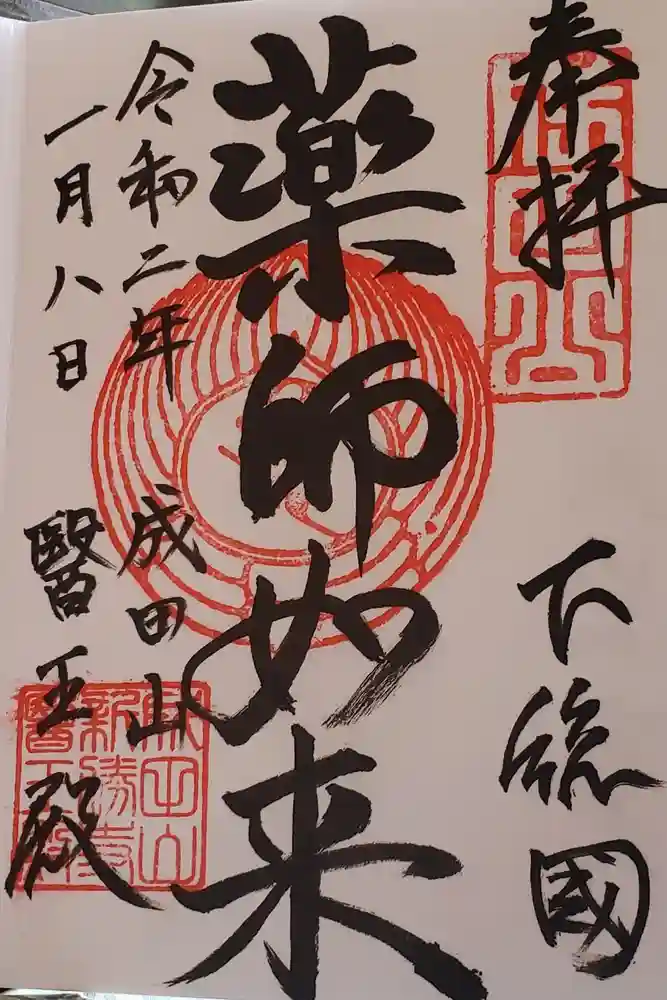 奉拝
下總國
薬師如来
令和二年
一月八日
成田山
醫王殿
成田山
新勝寺
醫王殿